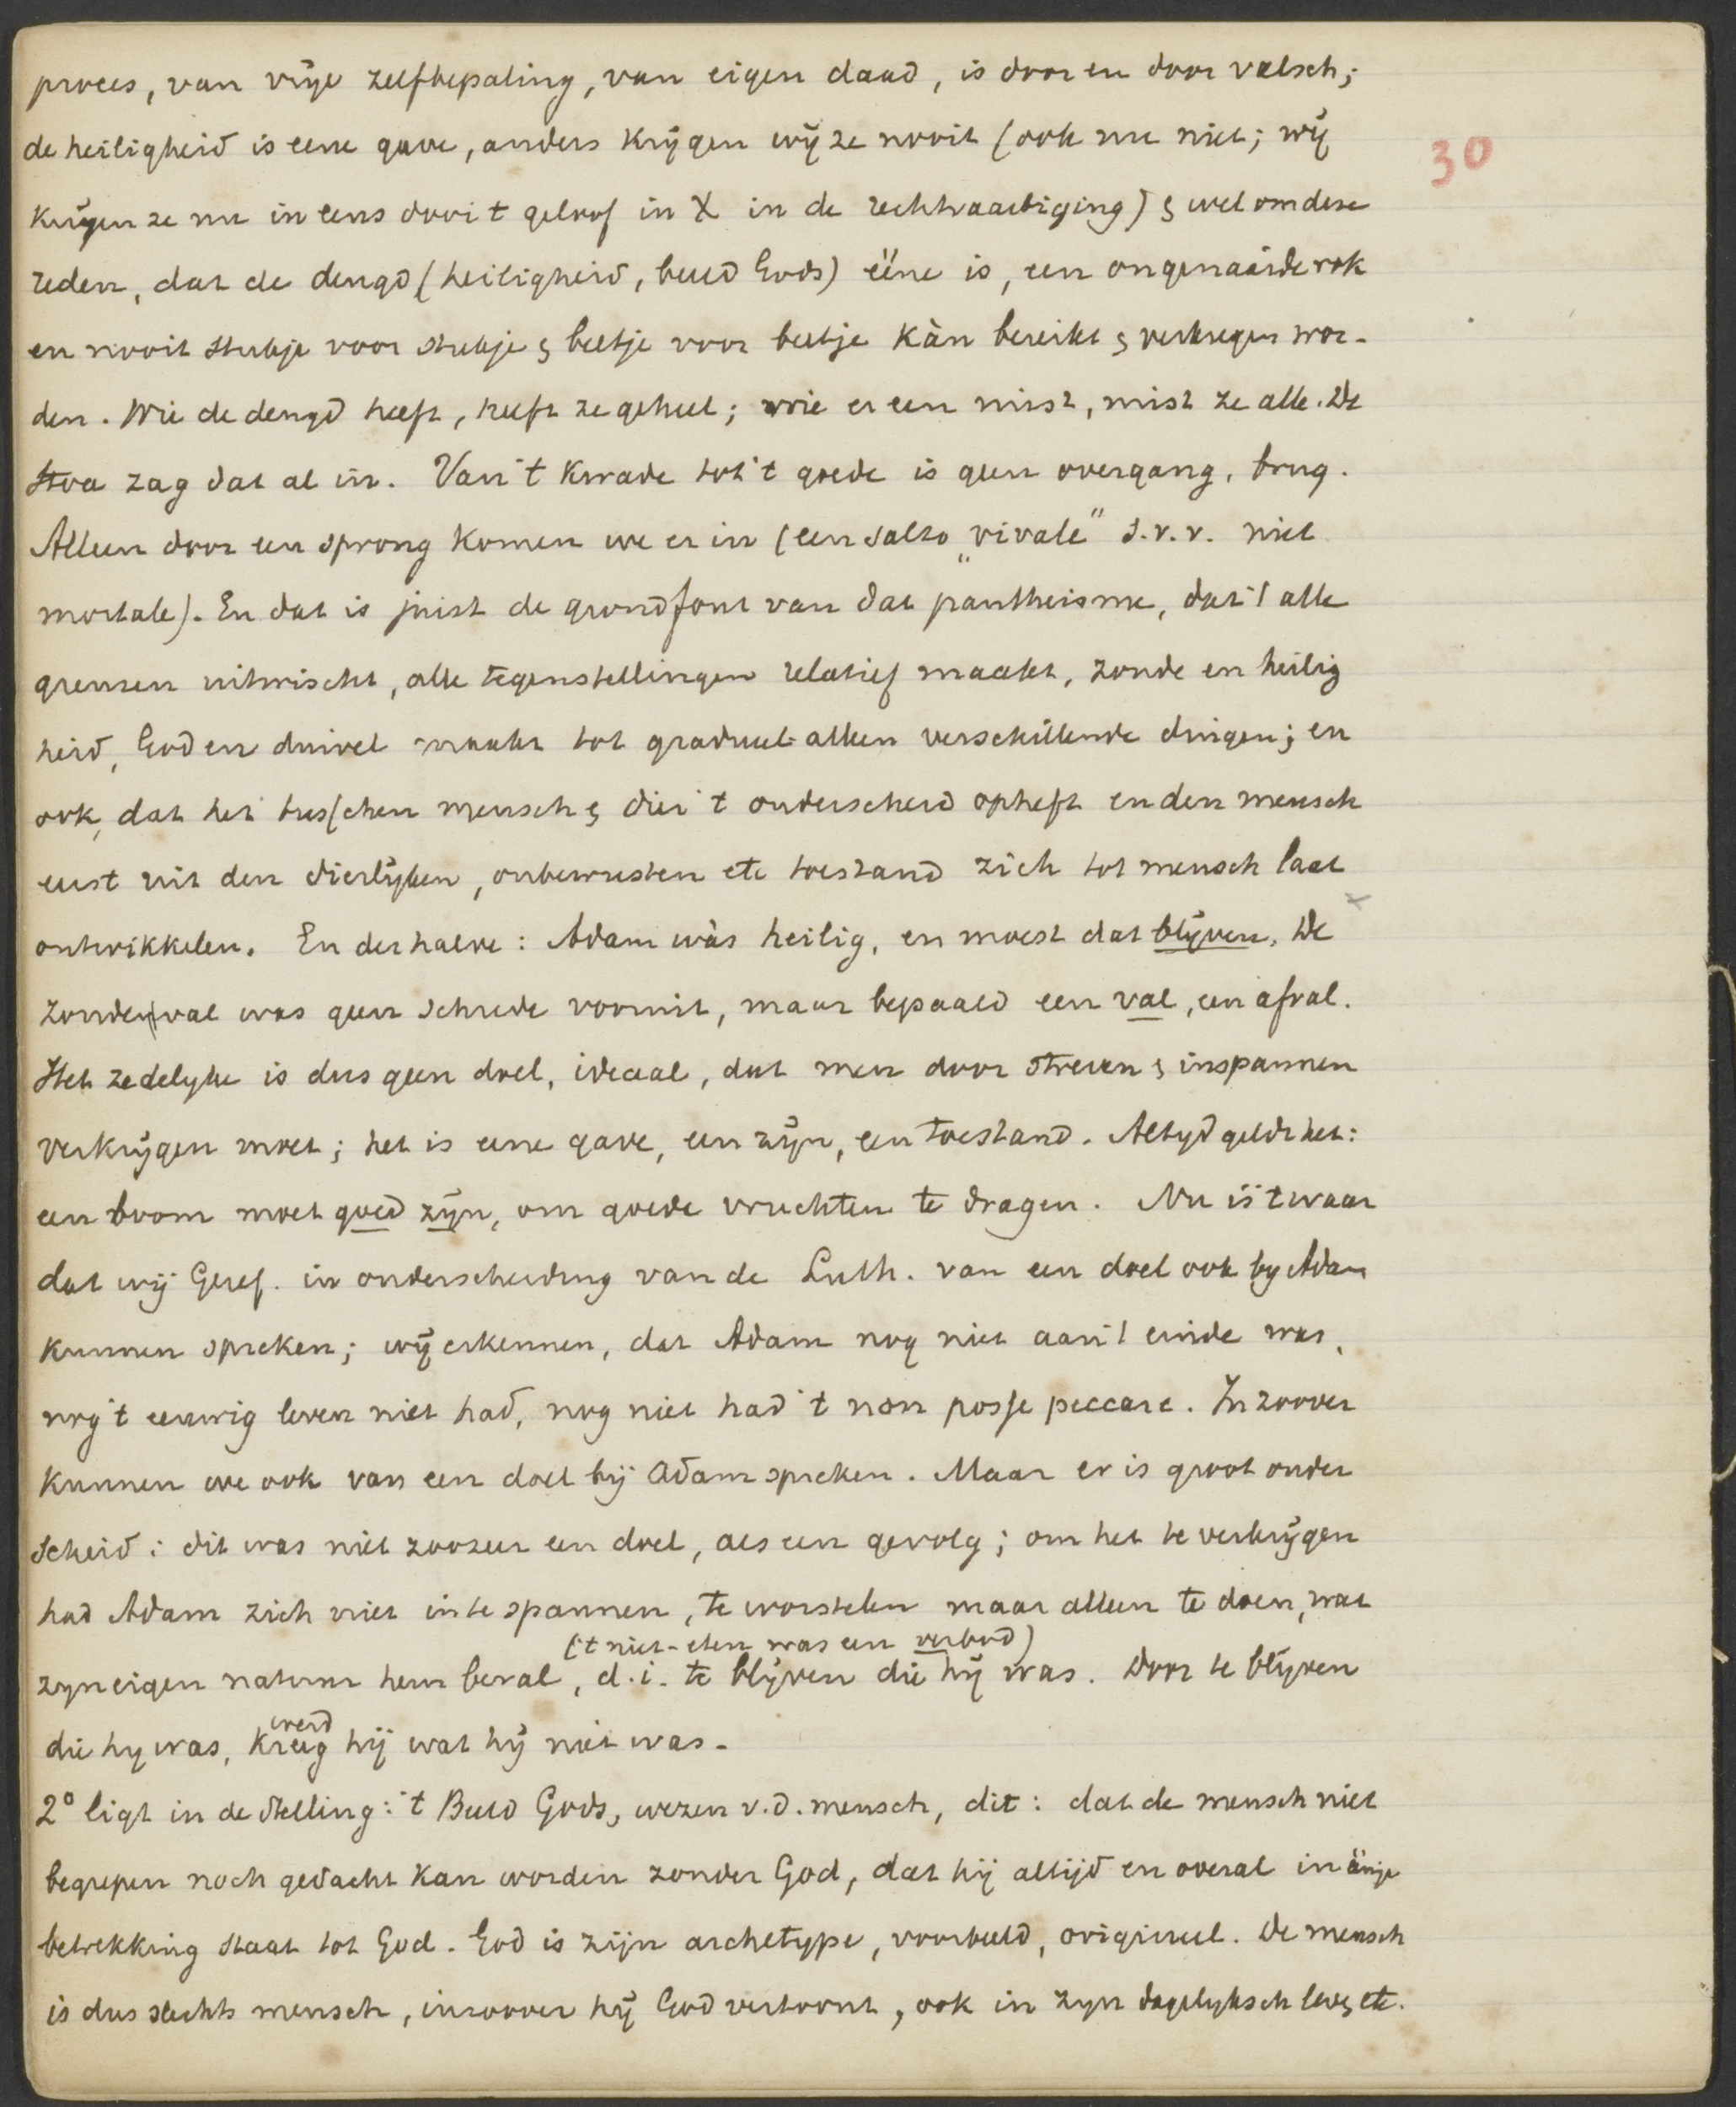 proces, van vrije zelfbepaling, van eigen daad, is door en door valsch;
de heiligheid is eene gave, anders krijgen wij ze nooit (ook nu niet; wij
30
krijgen ze nu in eens door 't geloof in X in de rechtvaardiging) & wel om deze
reden, dat de deugd (heiligheid, beeld Gods) ééne is, een ongenaaide rok
en nooit stukje voor stukje & beetje voor beetje kàn bereikt & verkregen wor-
den. Wie de deugd heeft, heeft ze geheel; wie er een mist, mist ze alle. De
Stoa zag dat al in. Van 't kwade tot 't goede is geen overgang, brug.
Alleen door een sprong komen we er in (een salto „vivale" s.v.v. niet
mortale). En dat is juist de grondfout van dat pantheisme, dat 't alle
grenzen uitwischt, alle tegenstellingen relatief maakt, zonde en heilig
heid, God en duivel maakt tot gradueel alleen verschillende dingen; en
ook, dat het tusschen mensch & dier 't onderscheid opheft en den mensch
eerst uit den dierlijken, onbewusten etc toestand zich tot mensch laat
ontwikkelen. En derhalve: Adam wàs heilig, en moest dat blijven. De
zondenval was geen schrede vooruit, maar bepaald een val, een afval.
Het zedelyke is dus geen doel, ideaal, dat men door streven & inspannen
verkrijgen moet; het is eene gave, een zijn, een toestand. Altyd geldt het:
een boom moet goed zijn, om goede vruchten te dragen. Nu is 't waar
dat wij Geref. in onderscheiding van de Luth. van een doel ook by Adam
kunnen spreken; wij erkennen, dat Adam nog niet aan 't einde was,
nog 't eeuwig leven niet had, nog niet had 't non posse peccare. In zoover
kunnen we ook van een doel bij Adam spreken. Maar er is groot onder
scheid: dit was niet zoozeer een doel, als een gevolg; om het te verkrijgen
had Adam zich niet in te spannen, te worstelen maar alleen te doen, wat
('t niet-eten was een verbod)
zyn eigen natuur hem beval, d.i. te blijven die hij was. Door te blijven
werd
die hy was, kreeg hij wat hij niet was.
2° ligt in de stelling: 't Beeld Gods, wezen v.d. mensch, dit: dat de mensch niet
begrepen noch gedacht kan worden zonder God, dat hij altijd en overal in
betrekking staat tot God. God is zijn archetype, voorbeeld, origineel. De mensch
is dus slechts mensch, inzoover hij God vertoont, ook in zyn dagelyksch lev& etc.